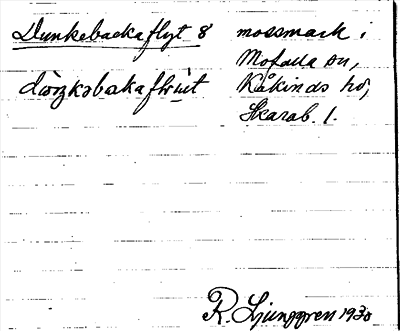 Dunkebackaflyt 8 mossmark i
Mofalla sn,
Kåkinds hd,
Skarab. l.
R. Ljunggren 1930